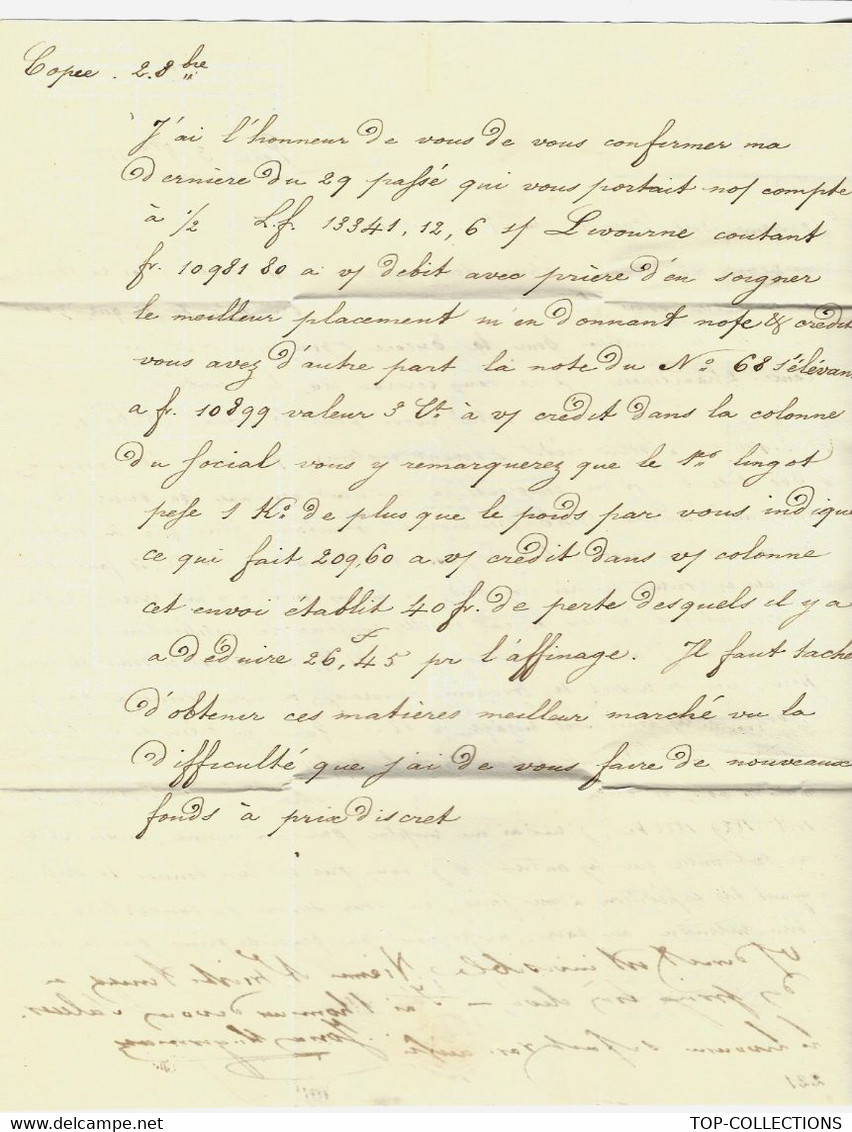 Copie . 2. 8bre
J'ai l'honneur de vous de vous confirmer ma
dernière du 29 passé qui vous portait no/ compte
à 1/2 L.f. 13341, 12, 6 s/ Livourne coutant
fr. 10981 80 a v/ debit avec prière d'en soigner
le meilleur placement m'en donnant note & crédit
vous avez d'autre part la note du No 68 s'élévan
a fr. 10899 valeur 3 Ct. à v/ crédit dans la colonne
du social vous y remarquerez que le 1er lingot
pese 1 Ko. de plus que le poids par vous indiqué
ce qui fait 209,60 a v/ crédit dans v/ colonne
cet envoi établit 40 fr. de perte desquels il y a
a déduire 26,45 pr l'affinage. Il faut tache
d'obtenir ces matières meilleur marché vu la
difficulté que j'ai de vous faire de nouveaux
fonds à prix discret
221
TOP-COLLECTIONS